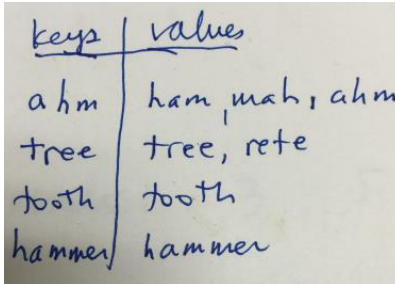 keys values
ahm ham, mah, ahm
tree tree, rete
tooth tooth
hammer hammer